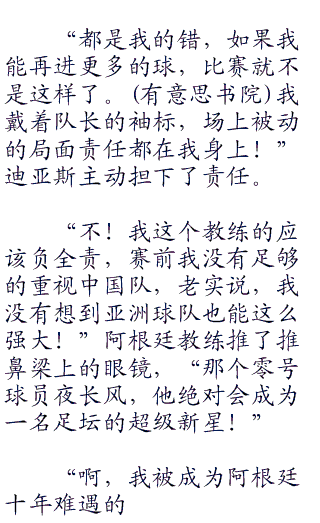 “都是我的错，如果我
能再进更多的球，比赛就不
是这样了。(有意思书院)我
戴着队长的袖标，场上被动
的局面责任都在我身上！”
迪亚斯主动担下了责任。
“不！我这个教练的应
该负全责，赛前我没有足够
的重视中国队，老实说，我
没有想到亚洲球队也能这么
强大！”阿根廷教练推了推
鼻梁上的眼镜，“那个零号
球员夜长风，他绝对会成为
一名足坛的超级新星！”
“啊，我被成为阿根廷
十年难遇的